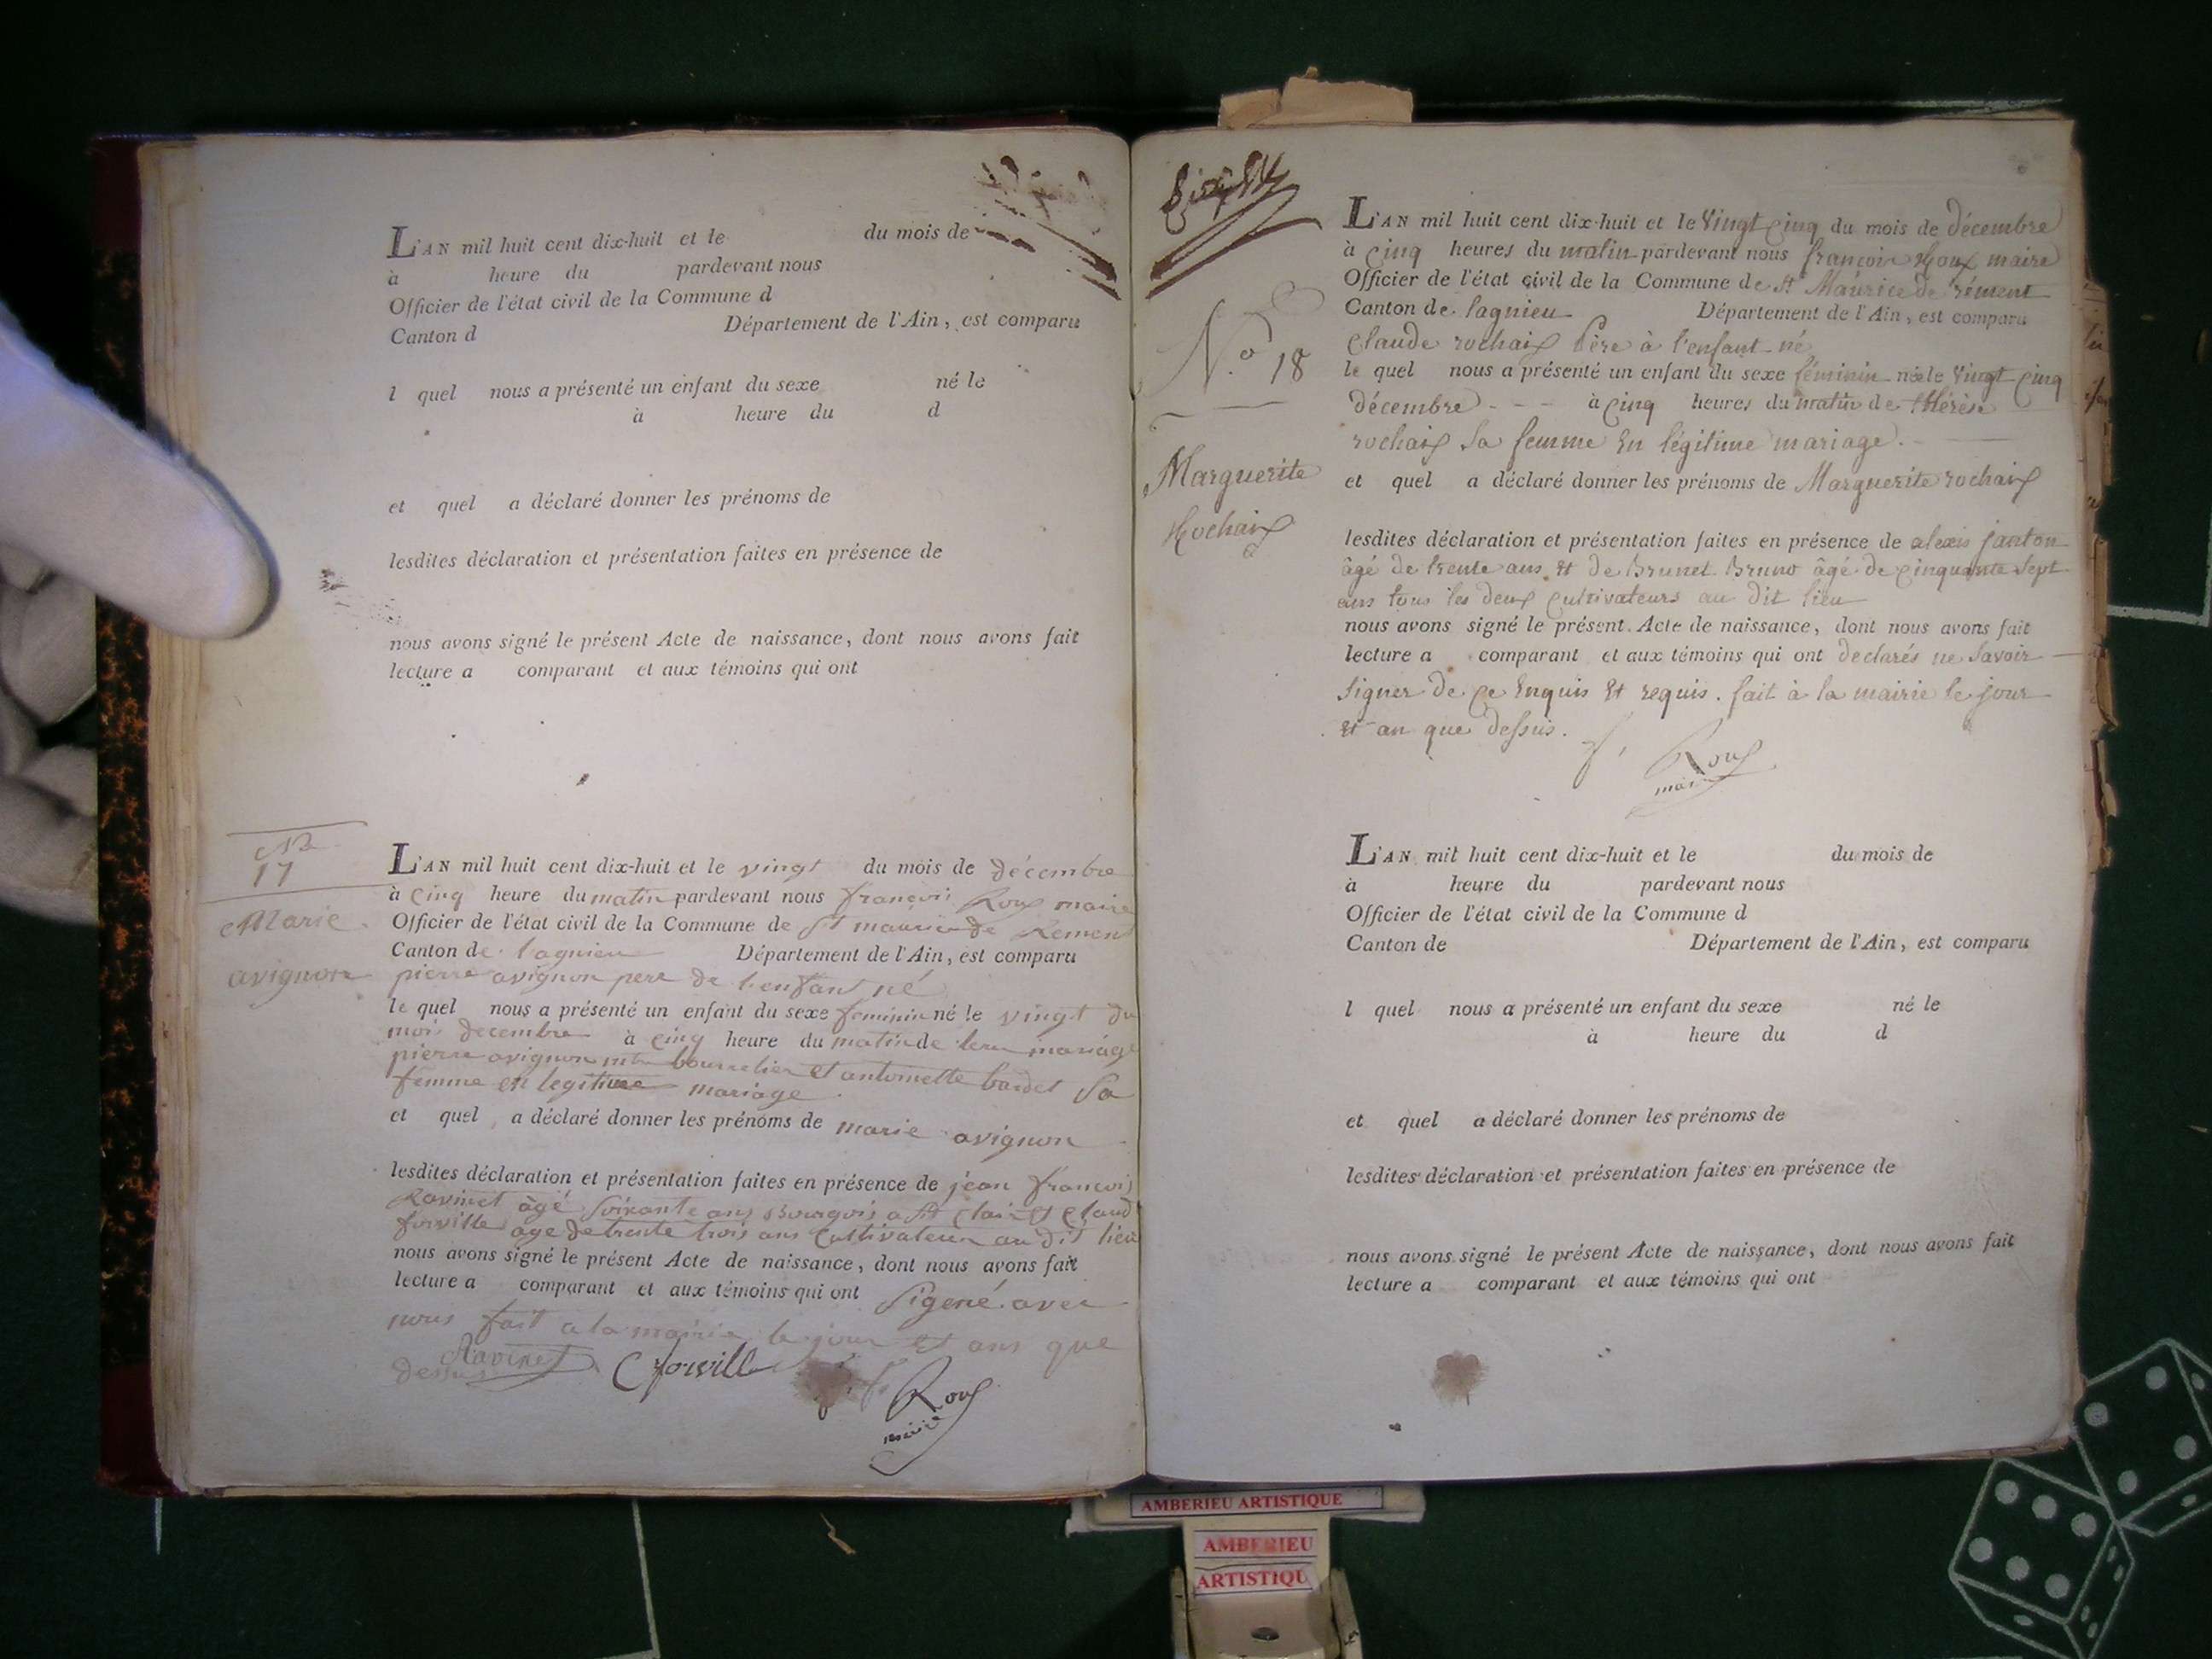 L'AN mil huit cent dix-huit et le du mois de
à heure du pardevant nous
Officier de l'état civil de la Commune d
Canton d Département de l'Ain, est comparu
l quel nous a présenté un enfant du sexe né le
à heure du d
et quel a déclaré donner les prénoms de
lesdites déclaration et présentation faites en présence de
nous avons signé le présent Acte de naissance, dont nous avons fait
lecture a comparant et aux témoins qui ont
17
Marie
avignon
L'AN mil huit cent dix-huit et le vingt du mois de décembre
à cinq heure du matin pardevant nous françois Roux maire
Officier de l'état civil de la Commune de St maurice de Rement
Canton de lagnieu Département de l'Ain, est comparu
pierre avignon pere de l'enfant né
le quel nous a présenté un enfant du sexe feminin né le vingt du
mois decembre à cinq heure du matin de leur mariage
pierre avignon bourrelier et antoinette bardet Sa
femme en legitime mariage
et quel a déclaré donner les prénoms de marie avignon
lesdites déclaration et présentation faites en présence de jean francois
Ravinet âgé Soixante ans Bourgois a St clair et Claud
forville age de trente trois ans Cultivateur au dit lieu
nous avons signé le présent Acte de naissance, dont nous avons fait
lecture a comparant et aux témoins qui ont Signé avec
nous fait a la mairie le jour et ans que
dessus
Ravinet C forville Roux
maire
N.o 18
Marguerite
Rochaix
L'AN mil huit cent dix-huit et le vingt cinq du mois de décembre
à cinq heures du matin pardevant nous françois Roux maire
Officier de l'état civil de la Commune de St Maurice de rément
Canton de lagnieu Département de l'Ain, est comparu
Claude rochaix Père à l'enfant né
le quel nous a présenté un enfant du sexe féminin née le vingt cinq
décembre à cinq heures du matin de thérèse
rochaix Sa femme En légitime mariage.
et quel a déclaré donner les prénoms de Marguerite rochaix
lesdites déclaration et présentation faites en présence de alexis janton
âgé de trente ans Et de Brunet Bruno âgé de cinquante Sept
ans tous les deux cultivateurs au dit lieu
nous avons signé le présent Acte de naissance, dont nous avons fait
lecture a comparant et aux témoins qui ont declarés ne Savoir
Signer de ce Enquis Et requis. fait à la mairie le jour
Et an que dessus.
f. Roux
maire
L'AN mil huit cent dix-huit et le du mois de
à heure du pardevant nous
Officier de l'état civil de la Commune d
Canton de Département de l'Ain, est comparu
l quel nous a présenté un enfant du sexe né le
à heure du d
et quel a déclaré donner les prénoms de
lesdites déclaration et présentation faites en présence de
nous avons signé le présent Acte de naissance, dont nous avons fait
lecture a comparant et aux témoins qui ont
AMBERIEU ARTISTIQUE
AMBERIEU
ARTISTIQU